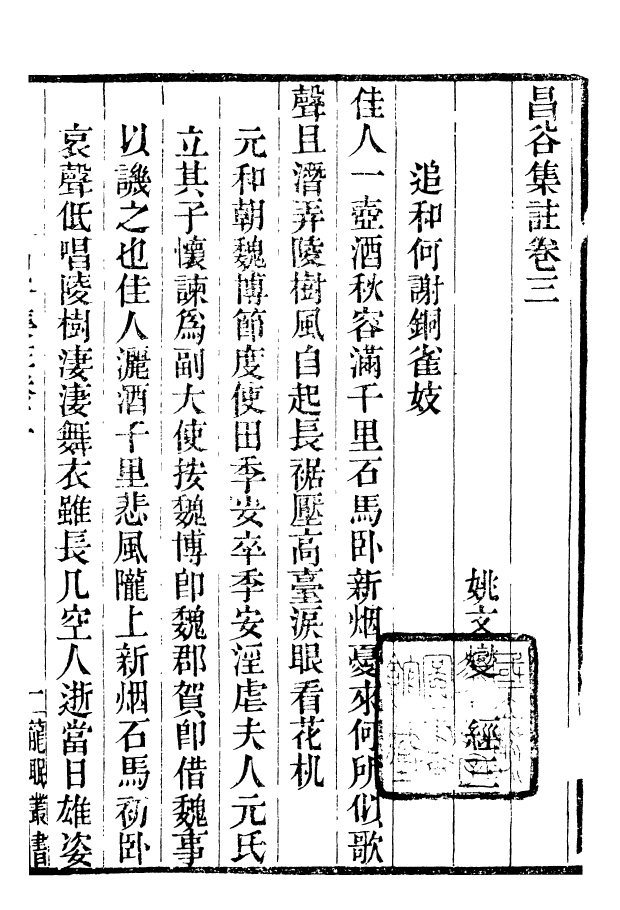 昌谷集註卷三
姚文燮 經三
追和何謝銅雀妓
佳人一壺酒秋容滿千里石馬卧新烟憂來何所似歌
聲且潛弄陵樹風自起長裾壓高臺淚眼看花机
元和朝魏博節度使田季安卒季安淫虐夫人元氏
立其子懷諫為副大使按魏博卽魏郡賀卽借魏事
以譏之也佳人灑酒千里悲風隴上新烟石馬初卧
哀聲低唱陵樹淒淒舞衣雖長几空人逝當日雄姿
龍眠叢書